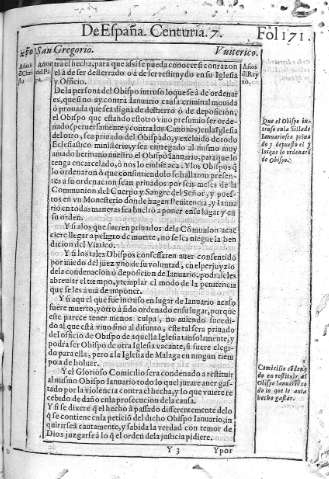 De España. Centuria. 7. Fol 171.
San Gregorio. Vuiterico.
tra el hecho, para que assi se pueda conocer si con razon
el à de ser desterrado o à de ser restituydo en su Iglesia
y Officio.
De la persona del Obispo intruso lo que se à de ordenar
es, que si no ay contra Ianuario causa criminal movida
o provada que sea digna de destierro ò de deposicion; el
Obispo que estando este otro vivo presumio ser ordenado
perversamente y contra los Canones en la Iglesia
de otro, sea privado del Obispado, y excluydo de todo
Eclesiastico ministerio, y sea entregado al mismo muy
amado hermano nuestro el Obispo Ianuario, para que lo
tenga encarcelado, ò nos lo embie aca. Y los Obispos que
lo ordenaron ò que consintiendolo se hallaron presentes
a su ordenacion sean privados por seis meses de la
Comunion del Cuerpo y Sangre del Señor, y puestos
en un Monesterio donde hagan Penitencia, y
en todas maneras sea hechado a poner en su lugar y en
su orden.
Y si a los que fueren privados de la Comunion acaeciere
llegar a peligro de muerte, no se les niegue la bendicion
del Viatico.
Y si los tales Obispos confessaren aver consentido
por miedo del juez y no de su voluntad, en el perjuyzio
de la condenacion ò deposicion de Ianuario, podrasles
abreviar el tiempo, y templar el modo de la penitencia
que se les à de imponer.
Y si aquel que fue intruso en lugar de Ianuario acaso
fuere muerto, y otro à sido ordenado en su lugar, porque
este parece tener menos culpa, no aviendo sucedido
al que està vivo sino al difunto, este tal sera privado
del officio de Obispo de aquella Iglesia tansolamente, y
podra ser Obispo de otra Iglesia vacante, si fuere elegido
para ella, pero a la Iglesia de Malaga en ningun tiempo
à de bolver.
Y el Glorioso Comiciolo sera condenado a restituir
al mismo Obispo Ianuario todo lo que jurare aver gastado
por la violencia contra el hecha, y lo que uviere recebido
de daño en la prosecucion de la causa.
Y si se dixere q̃ el hecho à passado diferentemente de lo
q̃ se contiene en la petició del dicho Obispo Ianuario, inquirirseà
cautamente, y sabida la verdad con temor de
Dios juzgarseà lo q̃ el orden de la justicia pidiere.
Y 3 Y por
Que al Obispo intruso
en la Silla de
Ianuario sea privado
y depuesto el y
los que lo ordenarõ
de Obispo.
Comiciolo es
do en restituir al
Obispo Ianuario todo
lo que le auia
hecho gastar.